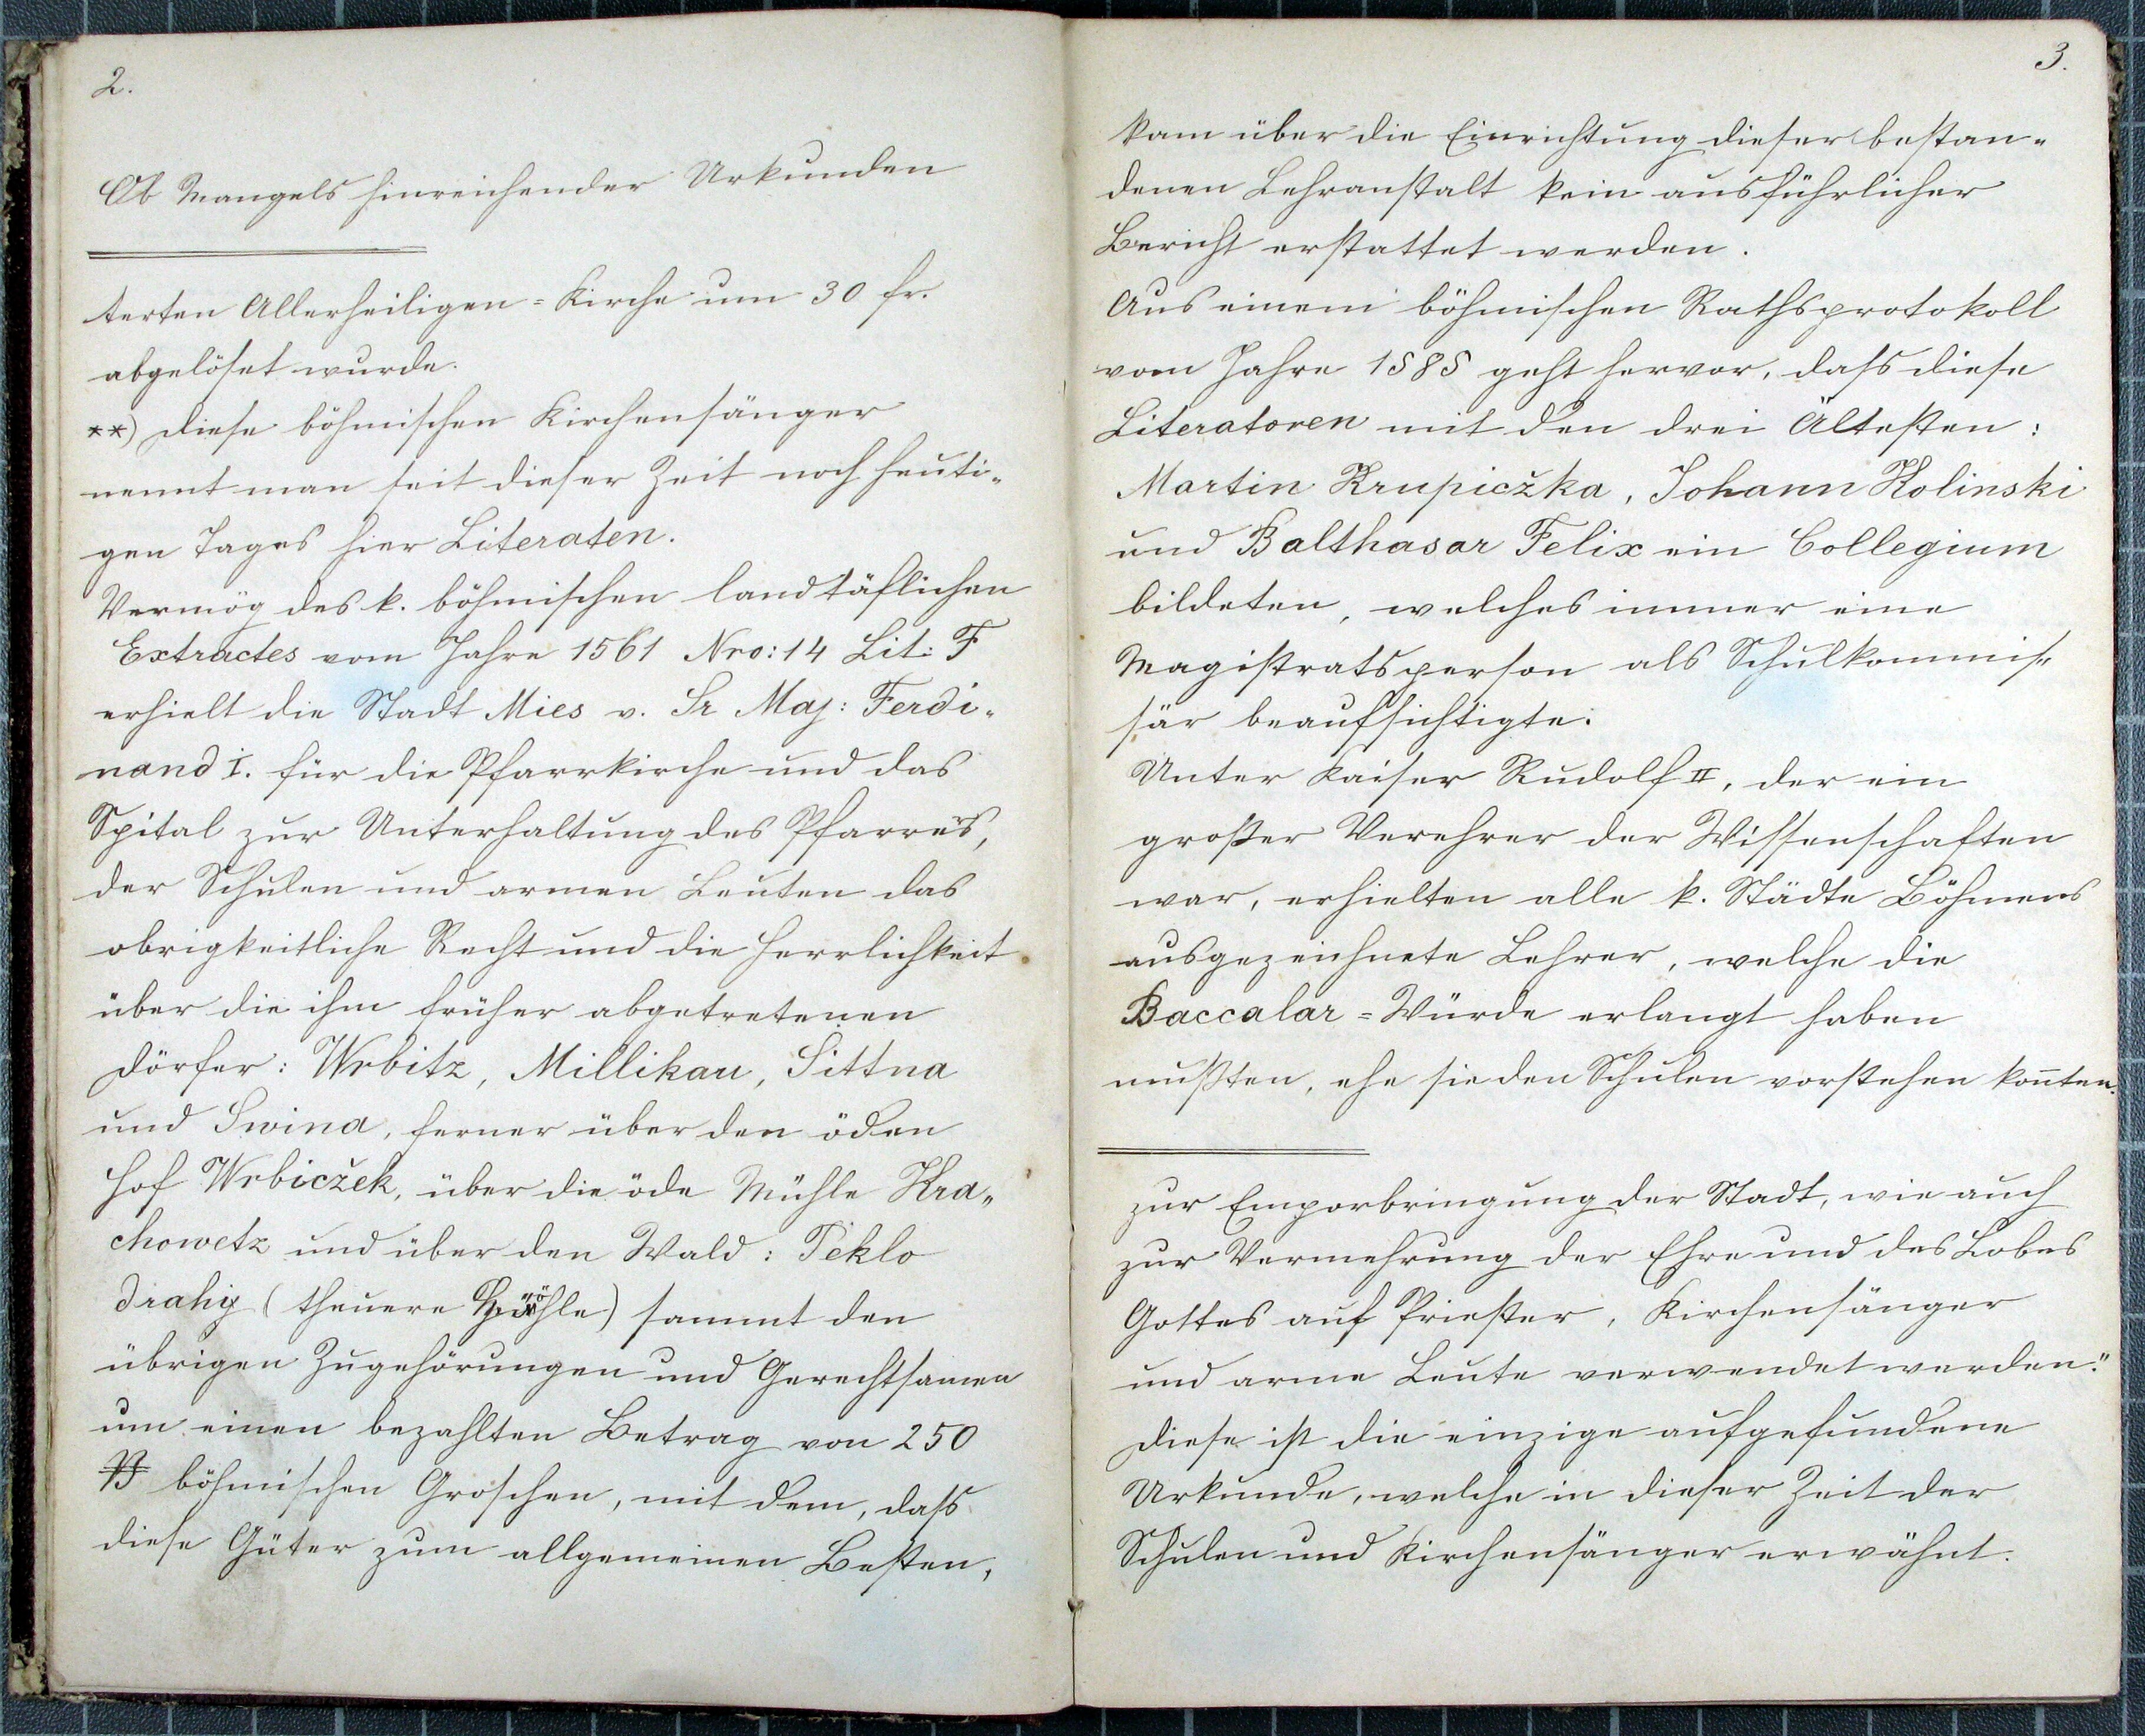 2.
Ob Mangels hinreichender Urkunden
terten Allerheiligen=Kirche um 30 fr.
abgelöset wurde.
**) Diese böhmischen Kirchensänger
nennt man seit dieser Zeit noch heuti-
gen Tages hier Literaten.
Vermög des k. böhmischen landtäflichen
Extractes vom Jahre 1561 Nro: 14 Lit: F
erhielt die Stadt Mies v. Sr Maj: Ferdi-
nand I. für die Pfarrkirche und das
Spital zur Unterhaltung des Pfarrers,
der Schulen und armen Leuten das
obrigkeitliche Recht und die Herrlichkeit
über die ihm früher abgetretenen
Dörfer: Wrbitz, Millikau, Sittna
und Swina, ferner über den öden
Hof Wrbiczek, über die öde Mühle Kra-
chowetz und über den Wald: Peklo
drahy (theuere Höhle) sammt den
übrigen Zugehörungen und Gerechtsamen
um einen bezahlten Betrag von 250
böhmischen Groschen, mit dem, daß
diese Güter zum allgemeinen Besten,
3.
kam über die Einrichtung dieser bestan-
denen Lehranstalt kein ausführlicher
Bericht erstattet werden.
Aus einem böhmischen Rathsprotokoll
vom Jahre 1585 geht hervor, daß diese
Literatoren mit den drei Ältesten:
Martin Krupiczka, Johann Kolinski
und Balthasar Felix ein Collegium
bildeten, welches immer eine
Magistratsperson als Schulkommis-
sär beaufsichtigte.
Unter Kaiser Rudolf II, der ein
großer Verehrer der Wissenschaften
war, erhielten alle k. Städte Böhmens
ausgezeichnete Lehrer, welche die
Baccalar=Würde erlangt haben
mußten, ehe sie den Schulen vorstehen kon̄ten.
zur Emporbringung der Stadt, wie auch
zur Vermehrung der Ehre und des Lobes
Gottes auf Priester, Kirchensänger
und arme Leute verwendet werden."
Diese ist die einzige aufgefundene
Urkunde, welche in dieser Zeit der
Schulen und Kirchensänger erwähnt.